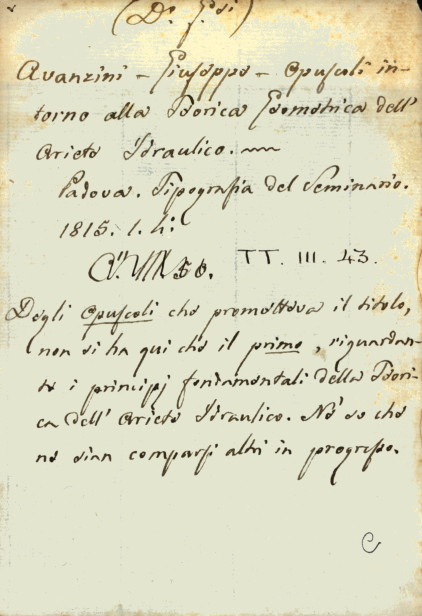 (Dr. Gsi)
Avanzini - Giuseppe - Opuscoli in-
torno alla Teorica Geometrica dell'
Ariete Idraulico.
Padova. Tipografia del Seminario.
1815. 1. 4:
TT. III. 43.
Degli Opuscoli che prometteva il titolo,
non si ha qui che il primo, riguardan-
te i principj fondamentali della Teori-
ca dell' Ariete Idraulico. Nè so che
ne sian comparsi altri in progresso.
C